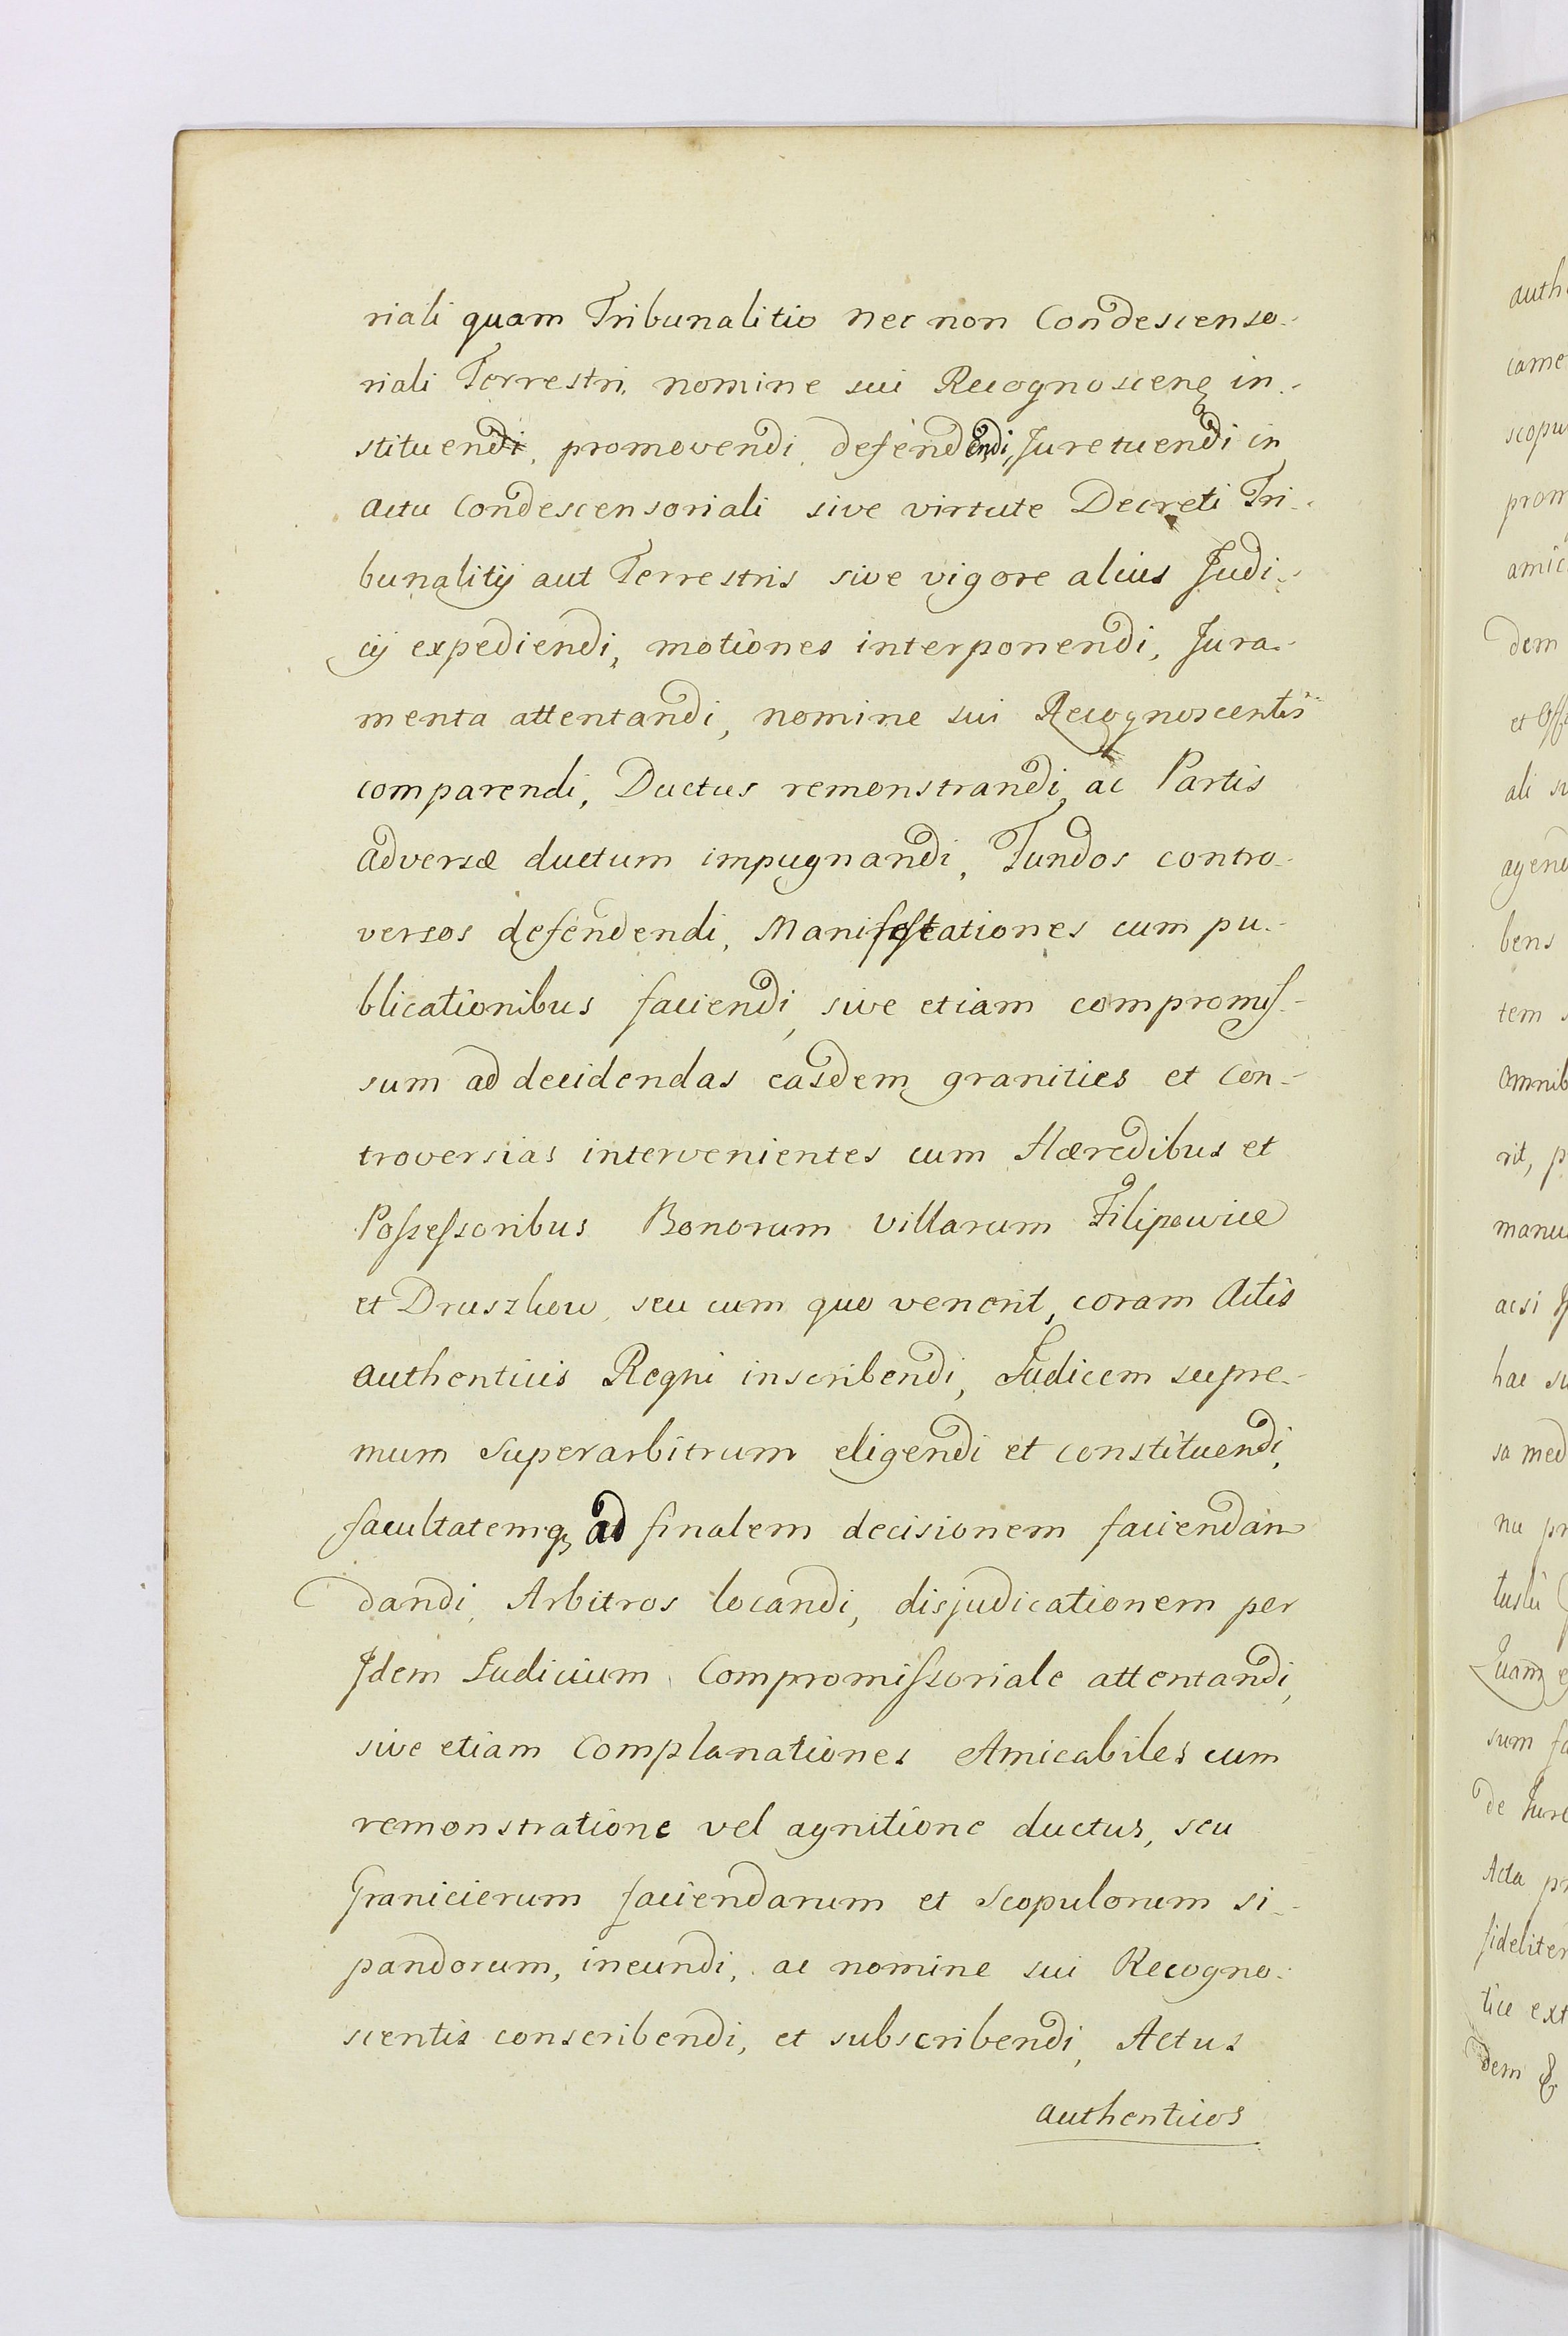 riali quam Tribunalitio nec non Condescenso-
riali Terrestri, nomine sui Recognoscenẓ in-
stituendi, promovendi, defendendi, Juretuendi in
actu Condescensoriali sive virtute Decreti Tri-
bunalitij aut Terrestris sive vigore alius Judi-
cij expediendi, motiones interponendi, Jura-
menta attentandi, nomine sui Recognoscentis
comparendi, Ductus remonstrandi, ac Partis
adversæ ductum impugnandi, Fundos contro-
versos defendendi, Manifestationes cum pu-
blicationibus faciendi, sive etiam compromiſ-
sum ad decidendas easdem granities et Con-
troversias intervenientes cum Hæredibus et
Poſseſsoribus Bonorum villarum Filipowice
et Druszkow, seu cum quo venerit, coram Actis
authenticis Regni inscribendi, Judicem supre-
mum Superarbitrum eligendi et constituendi,
facultatemqꝫ ad finalem decisionem faciendam
dandi, Arbitros locandi, disjudicationem per
Idem Judicium Compromiſsoriale attentandi,
sive etiam Complanationes Amicabiles cum
remonstratione vel agnitione ductus, seu
Granicierum faciendarum et Scopulorum si-
pandorum, ineundi, ac nomine sui Recogno-
scentis conscribendi, et subscribendi, Actus
authenticos
came
scopu
prom
amic
dem
et Off
ali su
agend
bens
tem s
Omnib
rit, p
manu
acsi
hac su
sa med
nu pr
Quam
sum fa
de Jure
Acta pr
fideliter
tice ext
dem &